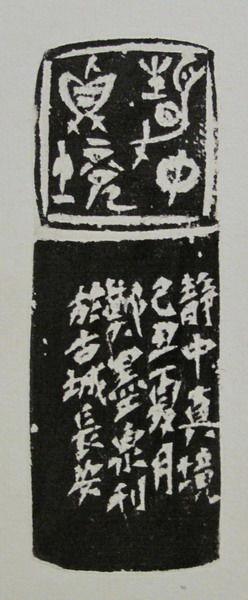 靜中
真境
靜中真境
己丑夏月
墨泉利
於古城長安